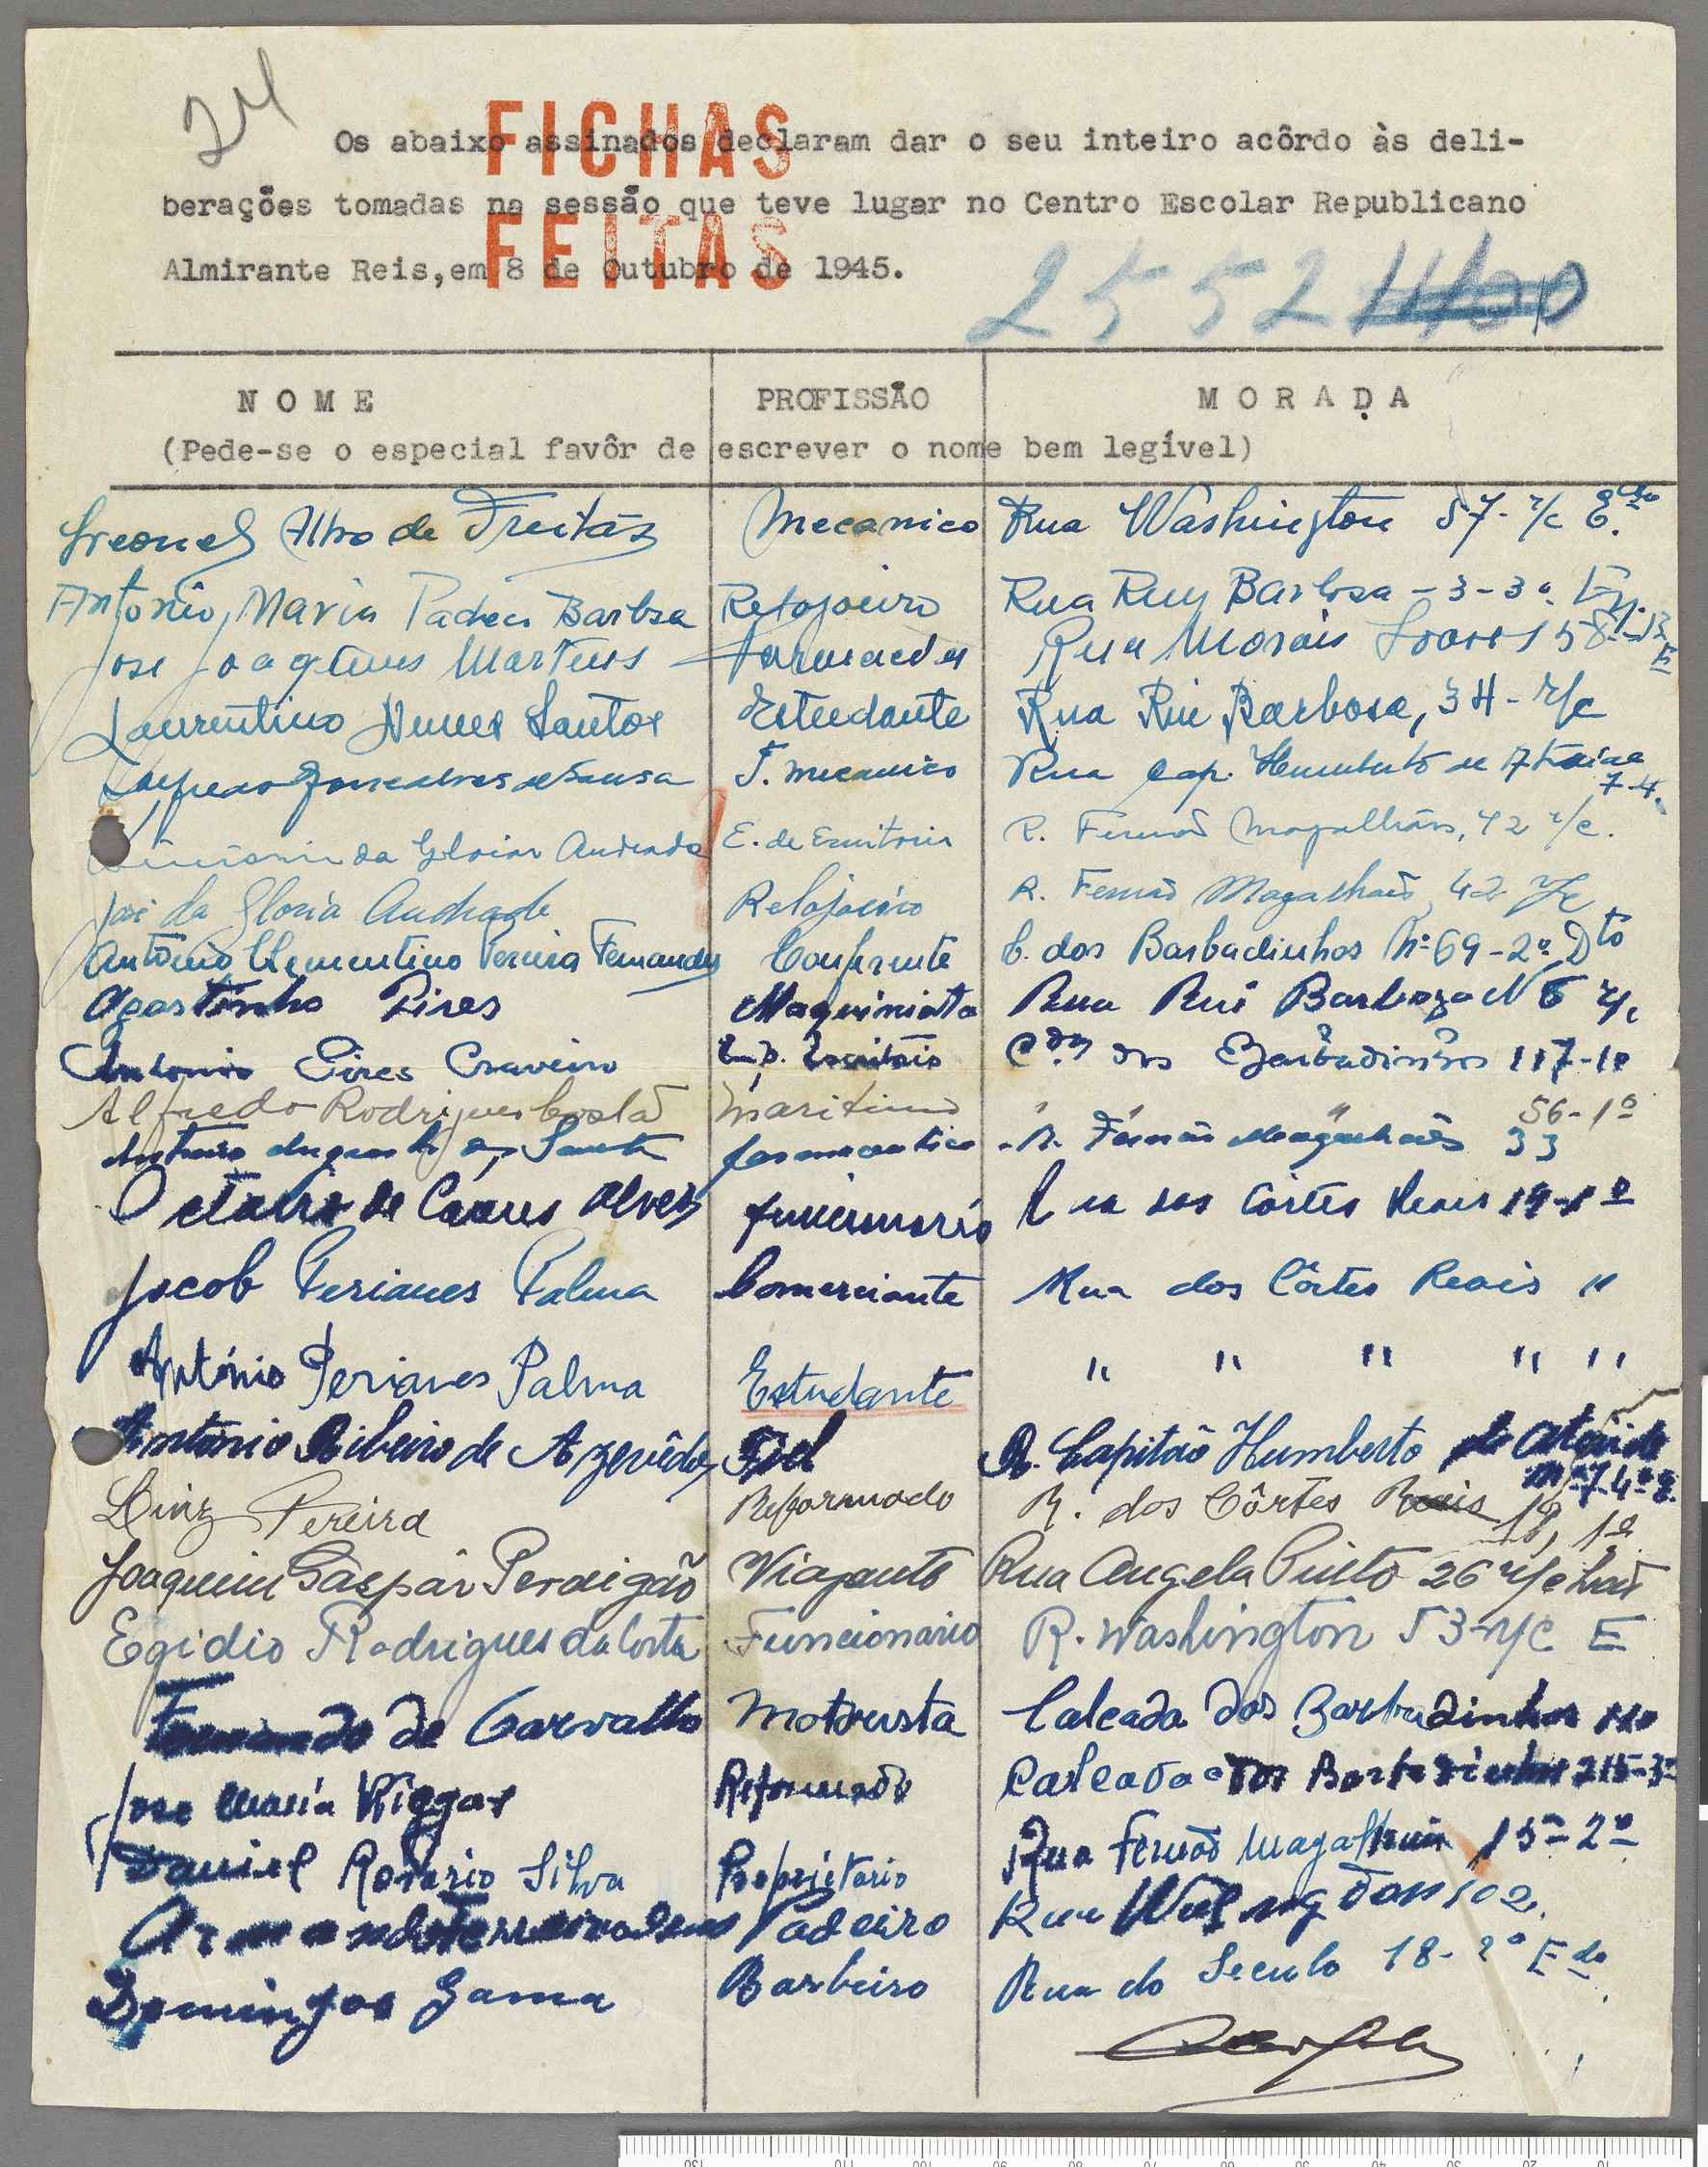 24
FICHAS
FEITAS
Os abaixo assinados declaram dar o seu inteiro acôrdo às deli-
berações tomadas na sessão que teve lugar no Centro Escolar Republicano
Almirante Reis,em 8 de Outubro de 1945.
2552
NOME PROFISSÃO MORADA
(Pede-se o especial favôr de escrever o nome bem legível)
de Freitas Mecanico Rua Washington 57-r/c E.
António Maria Barbosa Relojoeiro Rua Ruy Barbosa-3-3º.
José Joaquim Martins Rua Morais Soares
Laurentino Nunes Santos Estudante Rua Rui Barbosa, 34-r/c
Gonçalves de Sousa T. mecanico Rua Cap. Humberto de
7-4.
da Gloria Andrade E. de Escritorio R. Fernão Magalhães, 42 r/c.
José da Gloria Andrade Relojoeiro R. Fernão Magalhães, 42 r/c
António Clementino Pereira Fernandes Conferente C. dos Barbadinhos Nº 69-2º Dto
Agostinho Pires Maquinista Rua Rui Barboza N 6 r/c
Antonio Pires Craveiro Emp. Escritório Cda dos Barbadinhos 117-1º
Alfredo Rodrigues Costa Maritimo " " " 56-1º
farmaceutico R. Fernão Magalhães 33
Octavio de Alves funcionario Rua das Côrtes Reais 19-1º
Jacob Perianes Palma Comerciante Rua dos Côrtes Reais "
António Perianes Palma Estudante " " " " "
António Ribeiro de Azevêdo Fiel R. Capitão Humberto de Ataíde
nº 7-4º E.
Luiz Pereira Reformado R. dos Côrtes Reais 19, 1º
Joaquim Gaspar Perdigão Viajante Rua Angela Pinto 26 r/c
Egidio Rodrigues da Costa Funcionario R. Washington 53-r/c E
Fernando de Carvalho Motorista Calcada dos Barbadinhos
José Maria Viegas Reformado Calcada dos Barbadinhos 215-3º
Daniel Rosario Silva Proprietario Rua Fernão Magalhães 15-2º
Armando Ferreira Padeiro Rua 102.
Domingos Gama Barbeiro Rua do Seculo 18-2º Edo